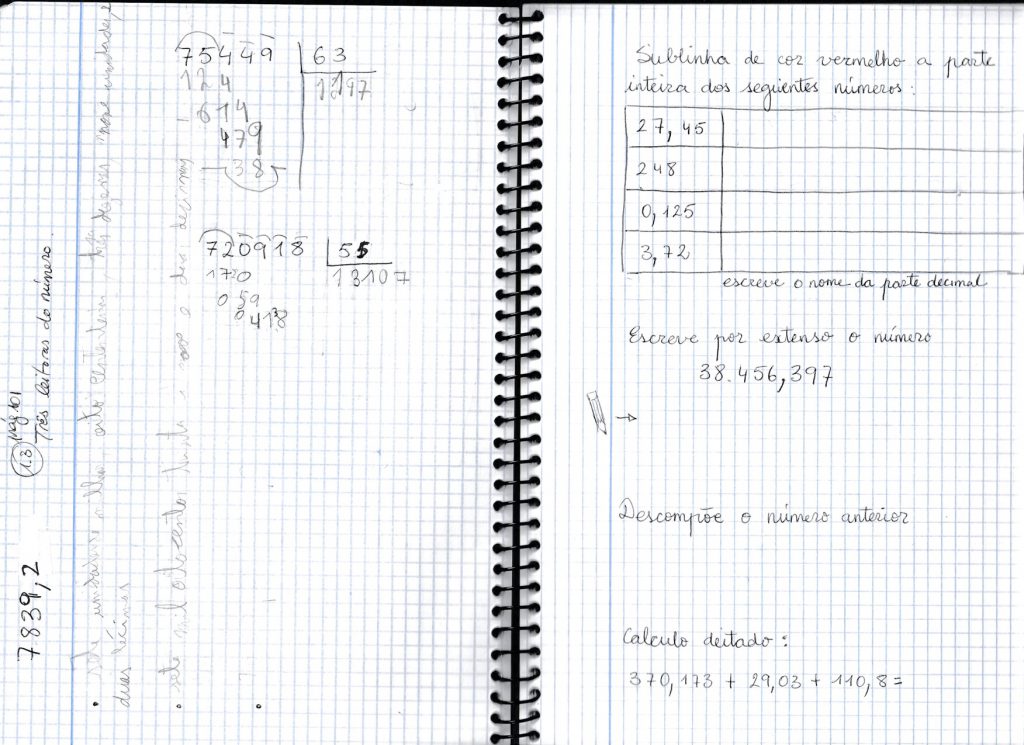 75449 63
124 1197
614
479
38
720918 55
1720 13107
059
0418
1.3 pág. 101
Três leituras do número.
7.839,2
• sete unidades milhar, oito centenas, três dezenas, nove unidades e
duas décimas
• sete mil oitocentos trinta e nove e duas décimas
•
Sublinha de cor vermelho a parte
inteira dos seguientes números:
27,45
248
0,125
3,72
escreve o nome da parte decimal
Escreve por extenso o número
38.456,397
→
Descompõe o número anterior
Calculo deitado:
370,173 + 29,03 + 110,8=